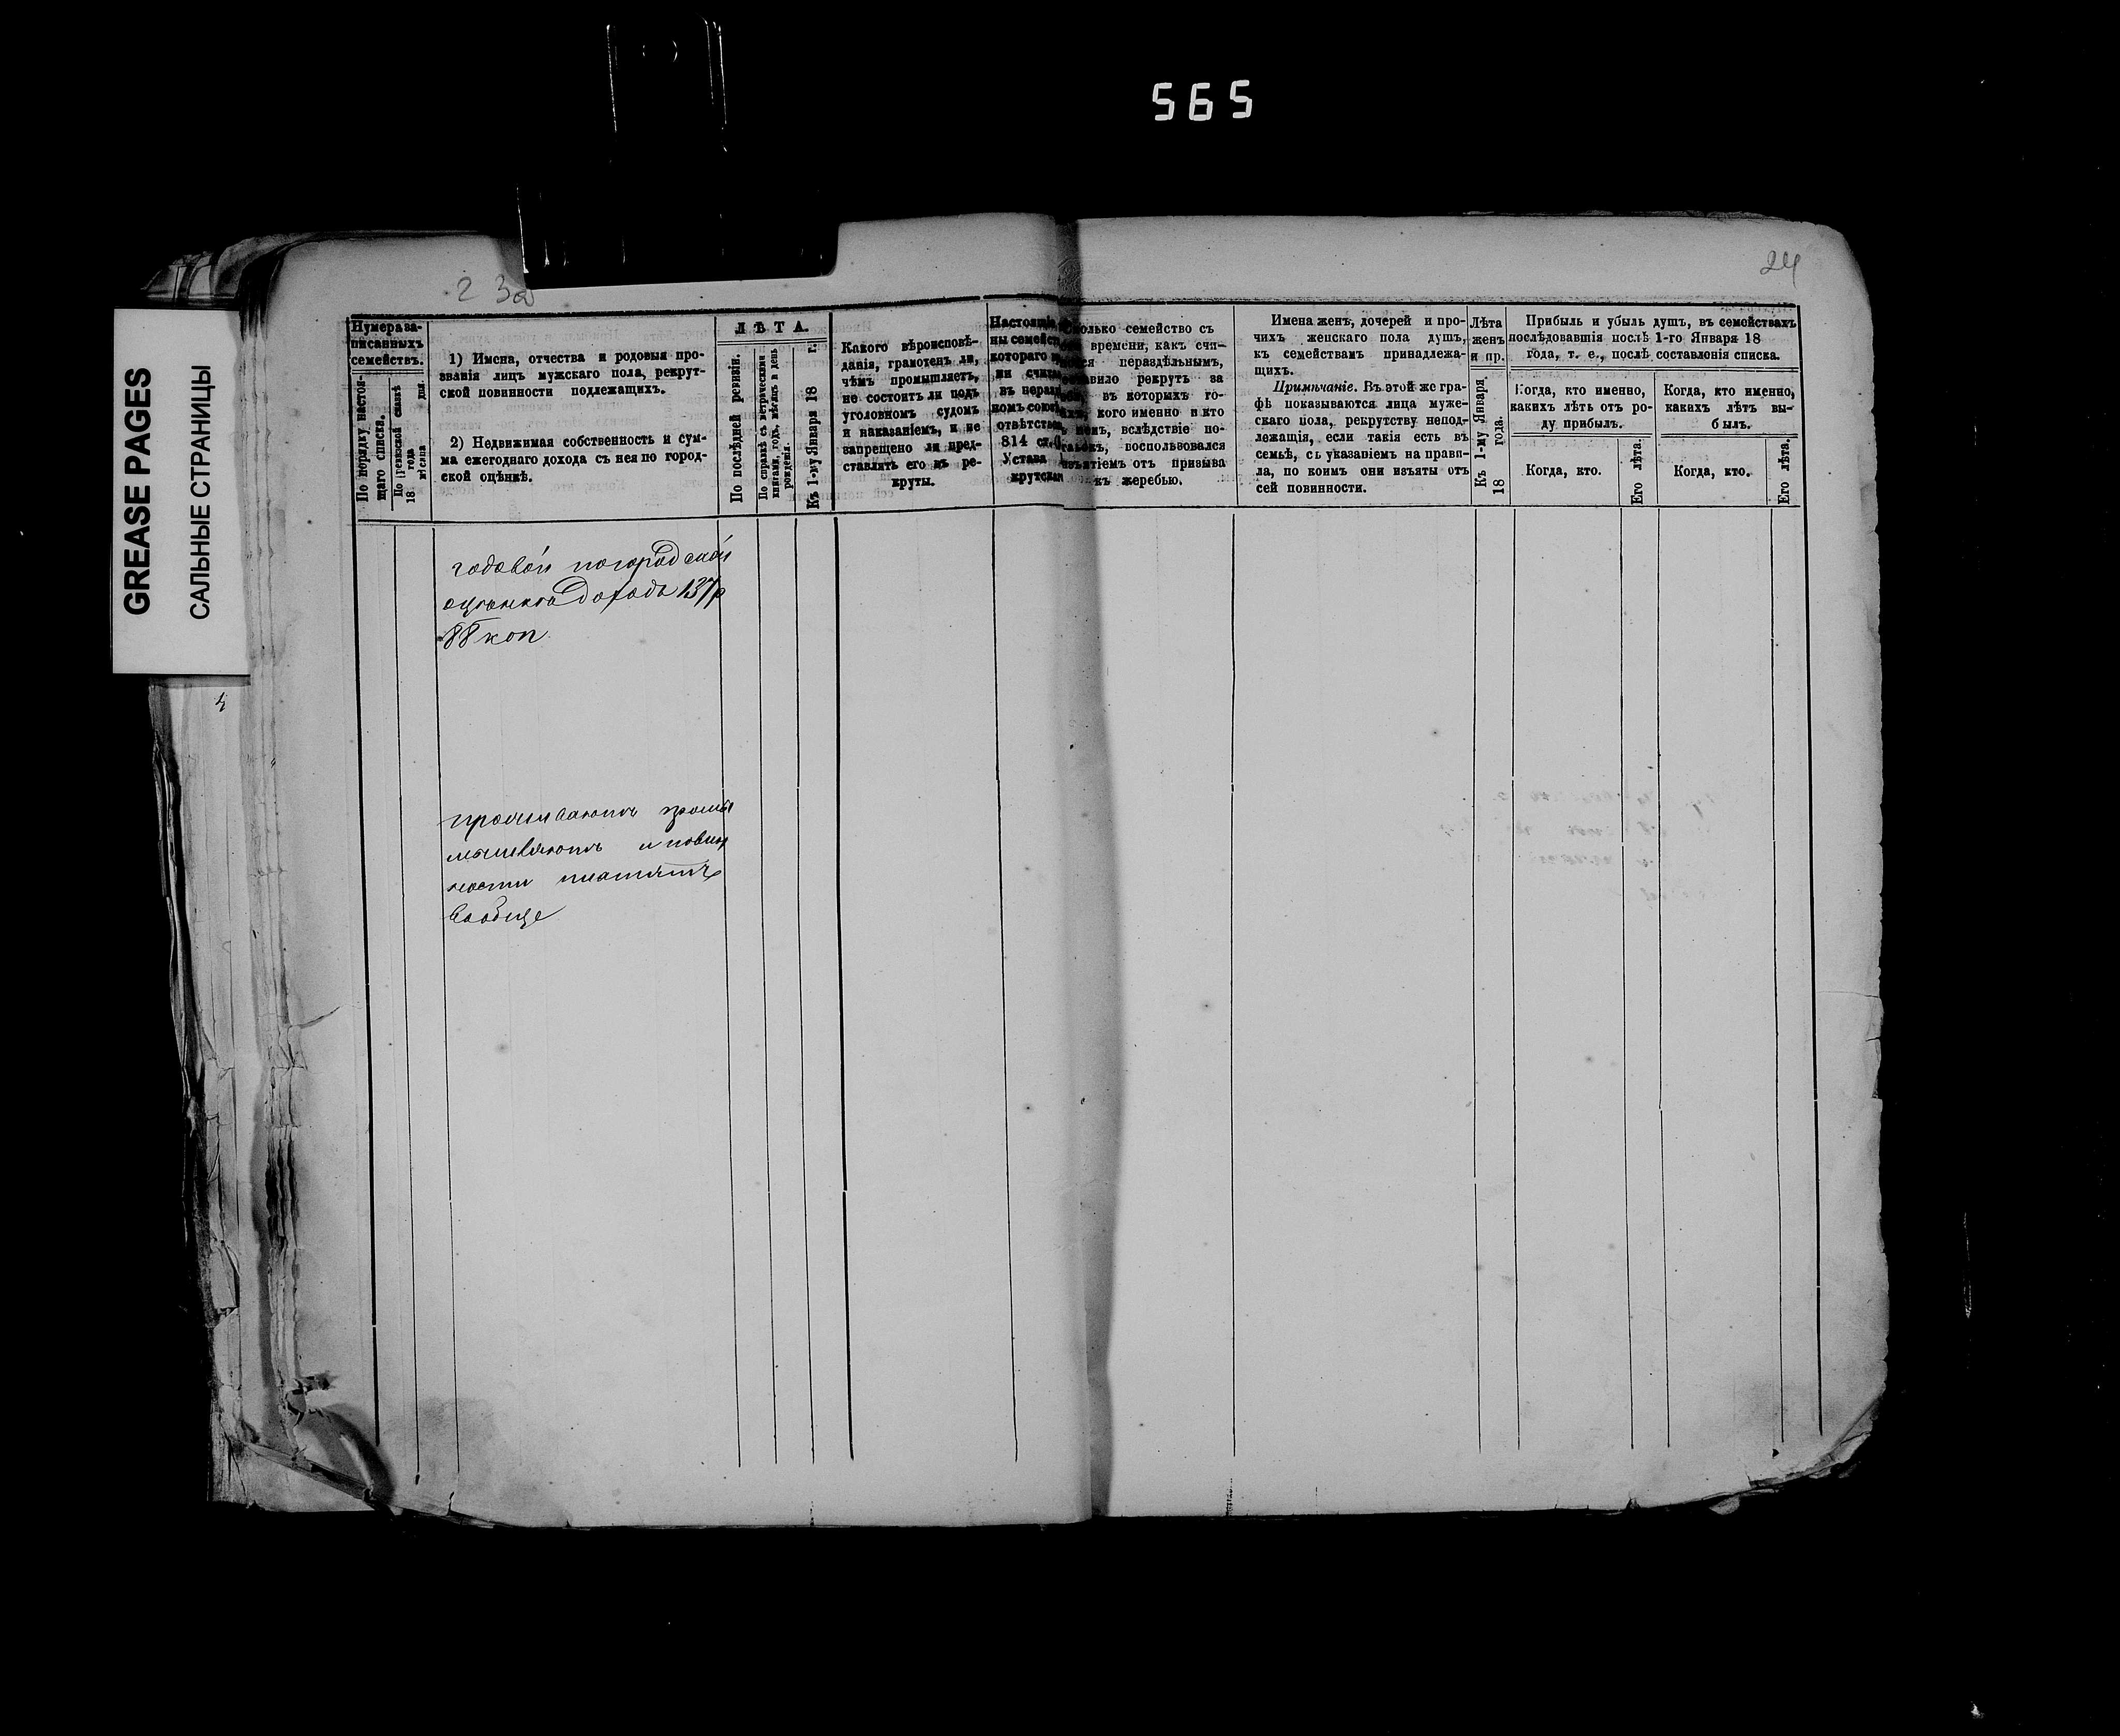 565
GREASE PAGES
САЛЬНЫЕ СТРАНИЦЫ
23а
24
Нумера за-
писанныхъ
семействъ.
По порядку настоя-
щаго списка.
По ревизской сказкѣ
18 года
мѣсяца дня.
1) Имена, отчества и родовыя про-
званія лицъ мужскаго пола, рекрут-
ской повинности подлежащихъ.
2) Недвижимая собственность и сум-
ма ежегоднаго дохода съ нея по город-
ской оцѣнкѣ.
ЛѢТА.
По послѣдней ревизіи.
По справкѣ съ метрическими
книгами, годъ, мѣсяцъ и день
рожденія.
Къ 1-му Января 18 г.
Какого вѣроисповѣ-
данія, грамотенъ ли,
чѣмъ промышляетъ,
не состоитъ ли подъ
уголовнымъ судомъ
и наказаніемъ, и не
запрещено ли пред-
ставлять его въ ре-
круты.
ны семейст
котораго
ни счита
въ нераз
номъ союз
отвѣтств
814 ст.
Устава
крутска
семейство съ
времени, какъ счи-
нераздѣльнымъ,
рекрутъ за
въ которыхъ го-
кого именно и кто
вслѣдствіе по-
воспользовался
изъятіемъ отъ призыва
къ жеребью.
Имена женъ, дочерей и про-
чихъ женскаго пола душъ,
къ семействамъ принадлежа-
щихъ.
Примѣчаніе. Въ этой же гра-
фѣ показываются лица муже-
скаго пола, рекрутству непод-
лежащія, если такія есть въ
семьѣ, съ указаніемъ на прави-
ла, по коимъ они изъяты отъ
сей повинности.
Лѣта
женъ
и пр.
Къ 1-му Января
18 года.
Прибыль и убыль душъ, въ семействахъ
послѣдовавшія послѣ 1-го Января 18
года, т. е., послѣ составленія списка.
Когда, кто именно,
какихъ лѣтъ отъ ро-
ду прибылъ.
Когда, кто.
Его лѣта.
Когда, кто именно,
какихъ лѣтъ вы-
былъ.
Когда, кто.
Его лѣта.
годовой по городской
оцѣнкѣ доходъ 137р
88 коп
проживаютъ промы
мышляютъ и повин
ности платятъ
вообще